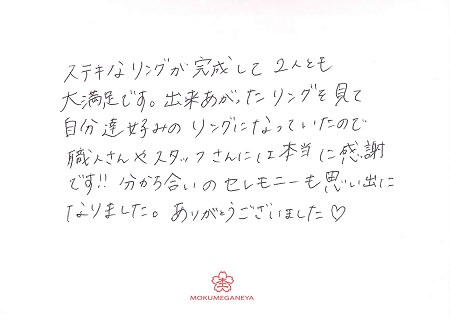 ステキなリングが完成して2人とも
大満足です。出来あがったリングを見て
自分達好みのリングになっていたので
職人さんやスタッフさんには本当に感謝
です!! 分かち合いのセレモニーも思い出に
なりました。ありがとうございました♡
MOKUMEGANEYA